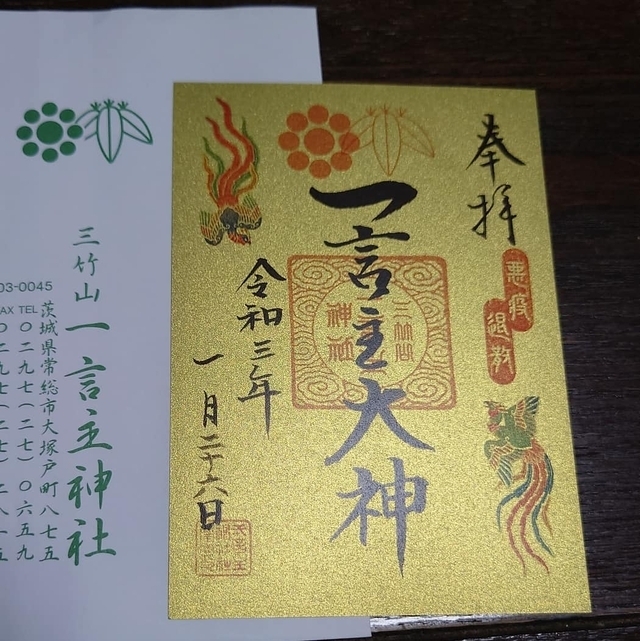 奉拝
悪疫
退散
一言主大神
令和三年
一月二十六日
三竹山 一言主神社
03-0045
茨城県常総市大塚戸町八七五
TEL 〇二九七(二七)〇六五九
AX 〇二九七(二七)二八一五